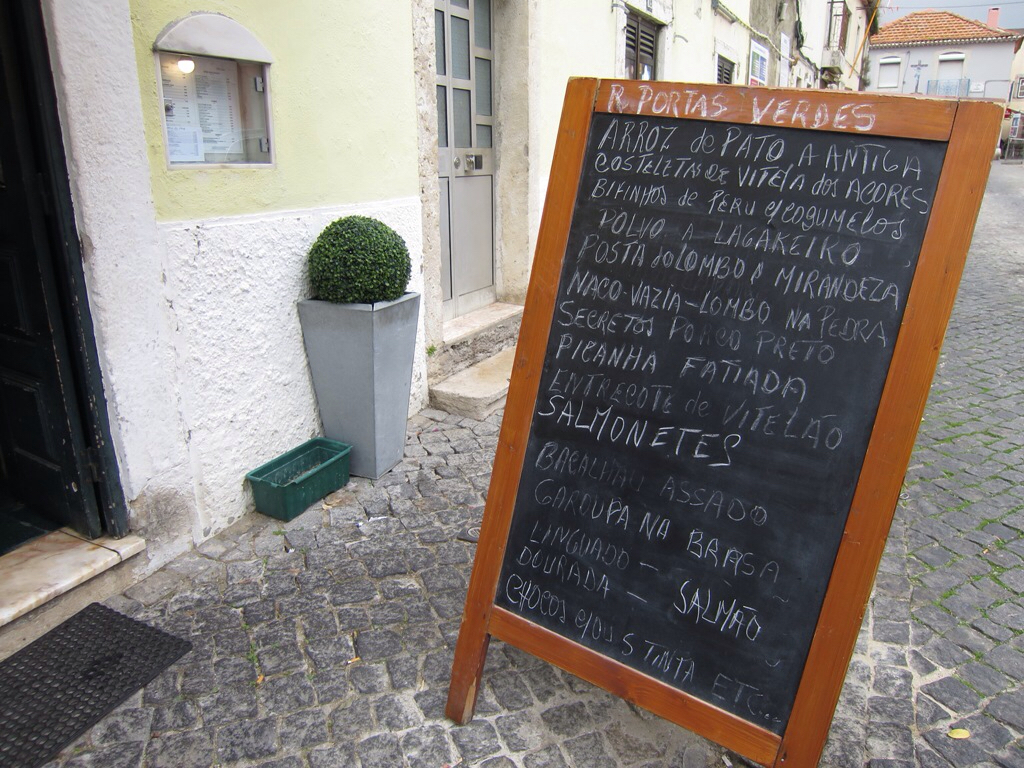 R. PORTAS VERDES
ARROZ de PATO A ANTIGA
COSTELETAS DE VITELA dos AÇORES
BIFINHOS de PERU c/ cogumelos
POLVO A LAGAREIRO
POSTA do LOMBO A MIRANDEZA
NACO-VAZIA-LOMBO NA PEDRA
SECRETOS PORCO PRETO
PICANHA FATIADA
ENTRECOTE de VITELÃO
SALMONETES
BACALHAU ASSADO
GAROUPA NA BRASA
LINGUADO -
DOURADA - SALMÃO
CHOCOS c/ou S TINTA ETC...